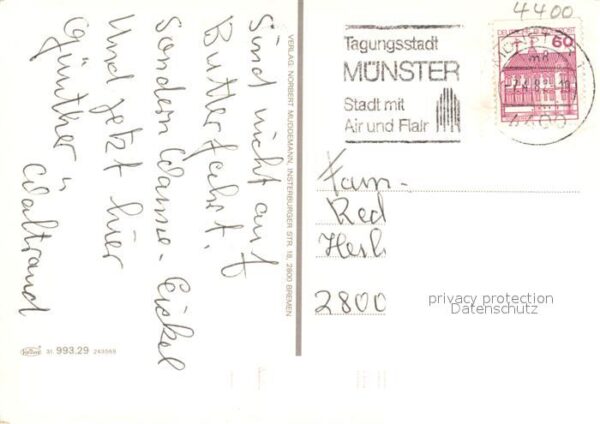 4400
Tagungsstadt
MÜNSTER
Stadt mit
Air und Flair
60
4400
Sind nicht auf
Butterfahrt.
sondern Wanne-Eickel
Und jetzt hier
Günther u.
Waltraud
VERLAG: NORBERT MUDDEMANN, INSTERBURGER STR. 18, 2800 BREMEN
Fam.
Red
2800
privacy protection
Datenschutz
31 993,29 249568